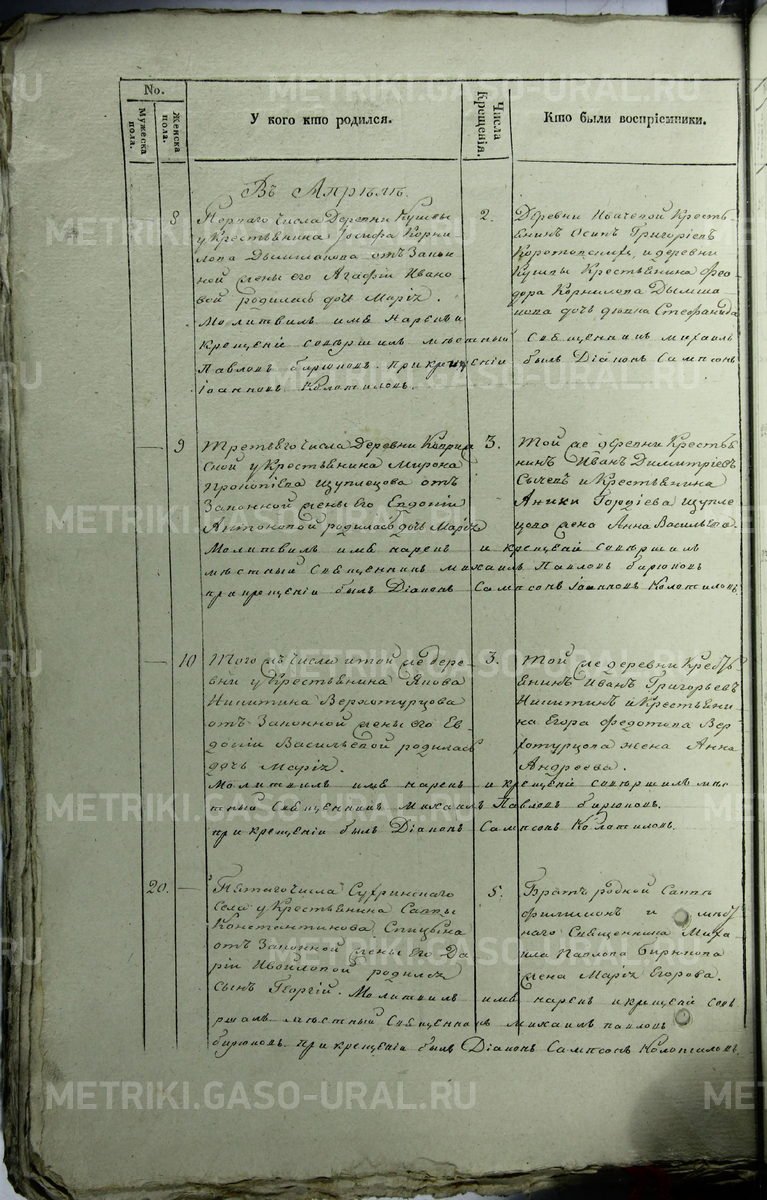 No.
Мужеска пола.
Женска пола.
У кого кто родился.
Числа Крещенія.
Кто были воспріемники.
Въ Апрѣлѣ.
8
Перваго числа Деревни
у Крестьянина Іосифа Корни-
лова Дымшакова отъ Закон-
ной жены его Агафіи Ивано-
вой родилась дочь Марія.
Молитвилъ имя нарекъ и
крещеніе совершилъ мѣстный Священникъ Михаилъ
Павловъ Бирюковъ. При крещеніи былъ Діаконъ Сампсонъ
Іоанновъ Колотиловъ.
2.
Деревни Ивачевой Кресть-
янинъ Осипъ Григоріевъ
и деревни
Крестьянина Фео-
дора Корнилова Дымша-
кова дочь дѣвка Стефанида
9
Третьяго числа Деревни
у Крестьянина Мирона
Прокопіева Щуплецова отъ
Законной жены его Евдокіи
Антоновой родилась дочь Марія
Молитвилъ имя нарекъ и крещеніе совершилъ
мѣстный Священникъ Михаилъ Павловъ Бирюковъ
при крещеніи былъ Діаконъ Сампсонъ Іоанновъ Колотиловъ
3.
Той же деревни Кресть-
янинъ Иванъ Димитріевъ
Сычевъ и Крестьянина
Аники Гордіева Щупле-
цова жена Анна Васильева.
10
Того жъ числа и той же дере-
вни у Крестьянина Якова
Никитина Верхотурцова
отъ Законной жены его Ев-
докіи Васильевой родилась
дочь Марія.
Молитвилъ имя нарекъ и крещеніе совершилъ мѣс-
тный Священникъ Михаилъ Павловъ Бирюковъ.
при крещеніи былъ Діаконъ Сампсонъ Колотиловъ.
3.
Той же деревни Кресть-
янинъ Иванъ Григорьевъ
Никитинъ и Крестьяни-
на Егора Федотова Вер-
хотурцова жена Анна
Андреева.
20.
Пятаго числа Сугринскаго
Села у Крестьянина Саввы
Константинова Спицына
отъ Законной жены его Да-
ріи Ивойловой родился
сынъ Георгій. Молитвилъ имя нарекъ и крещеніе сове-
ршалъ мѣстный Священникъ Михаилъ Павловъ
Бирюковъ. при крещеніи былъ Діаконъ Сампсонъ Колотиловъ.
5.
Братъ родной Саввы
Филимонъ и мѣст-
наго Священника Миха-
ила Павлова Бирюкова
жена Марія Егорова.
METRIKI.GASO-URAL.RU